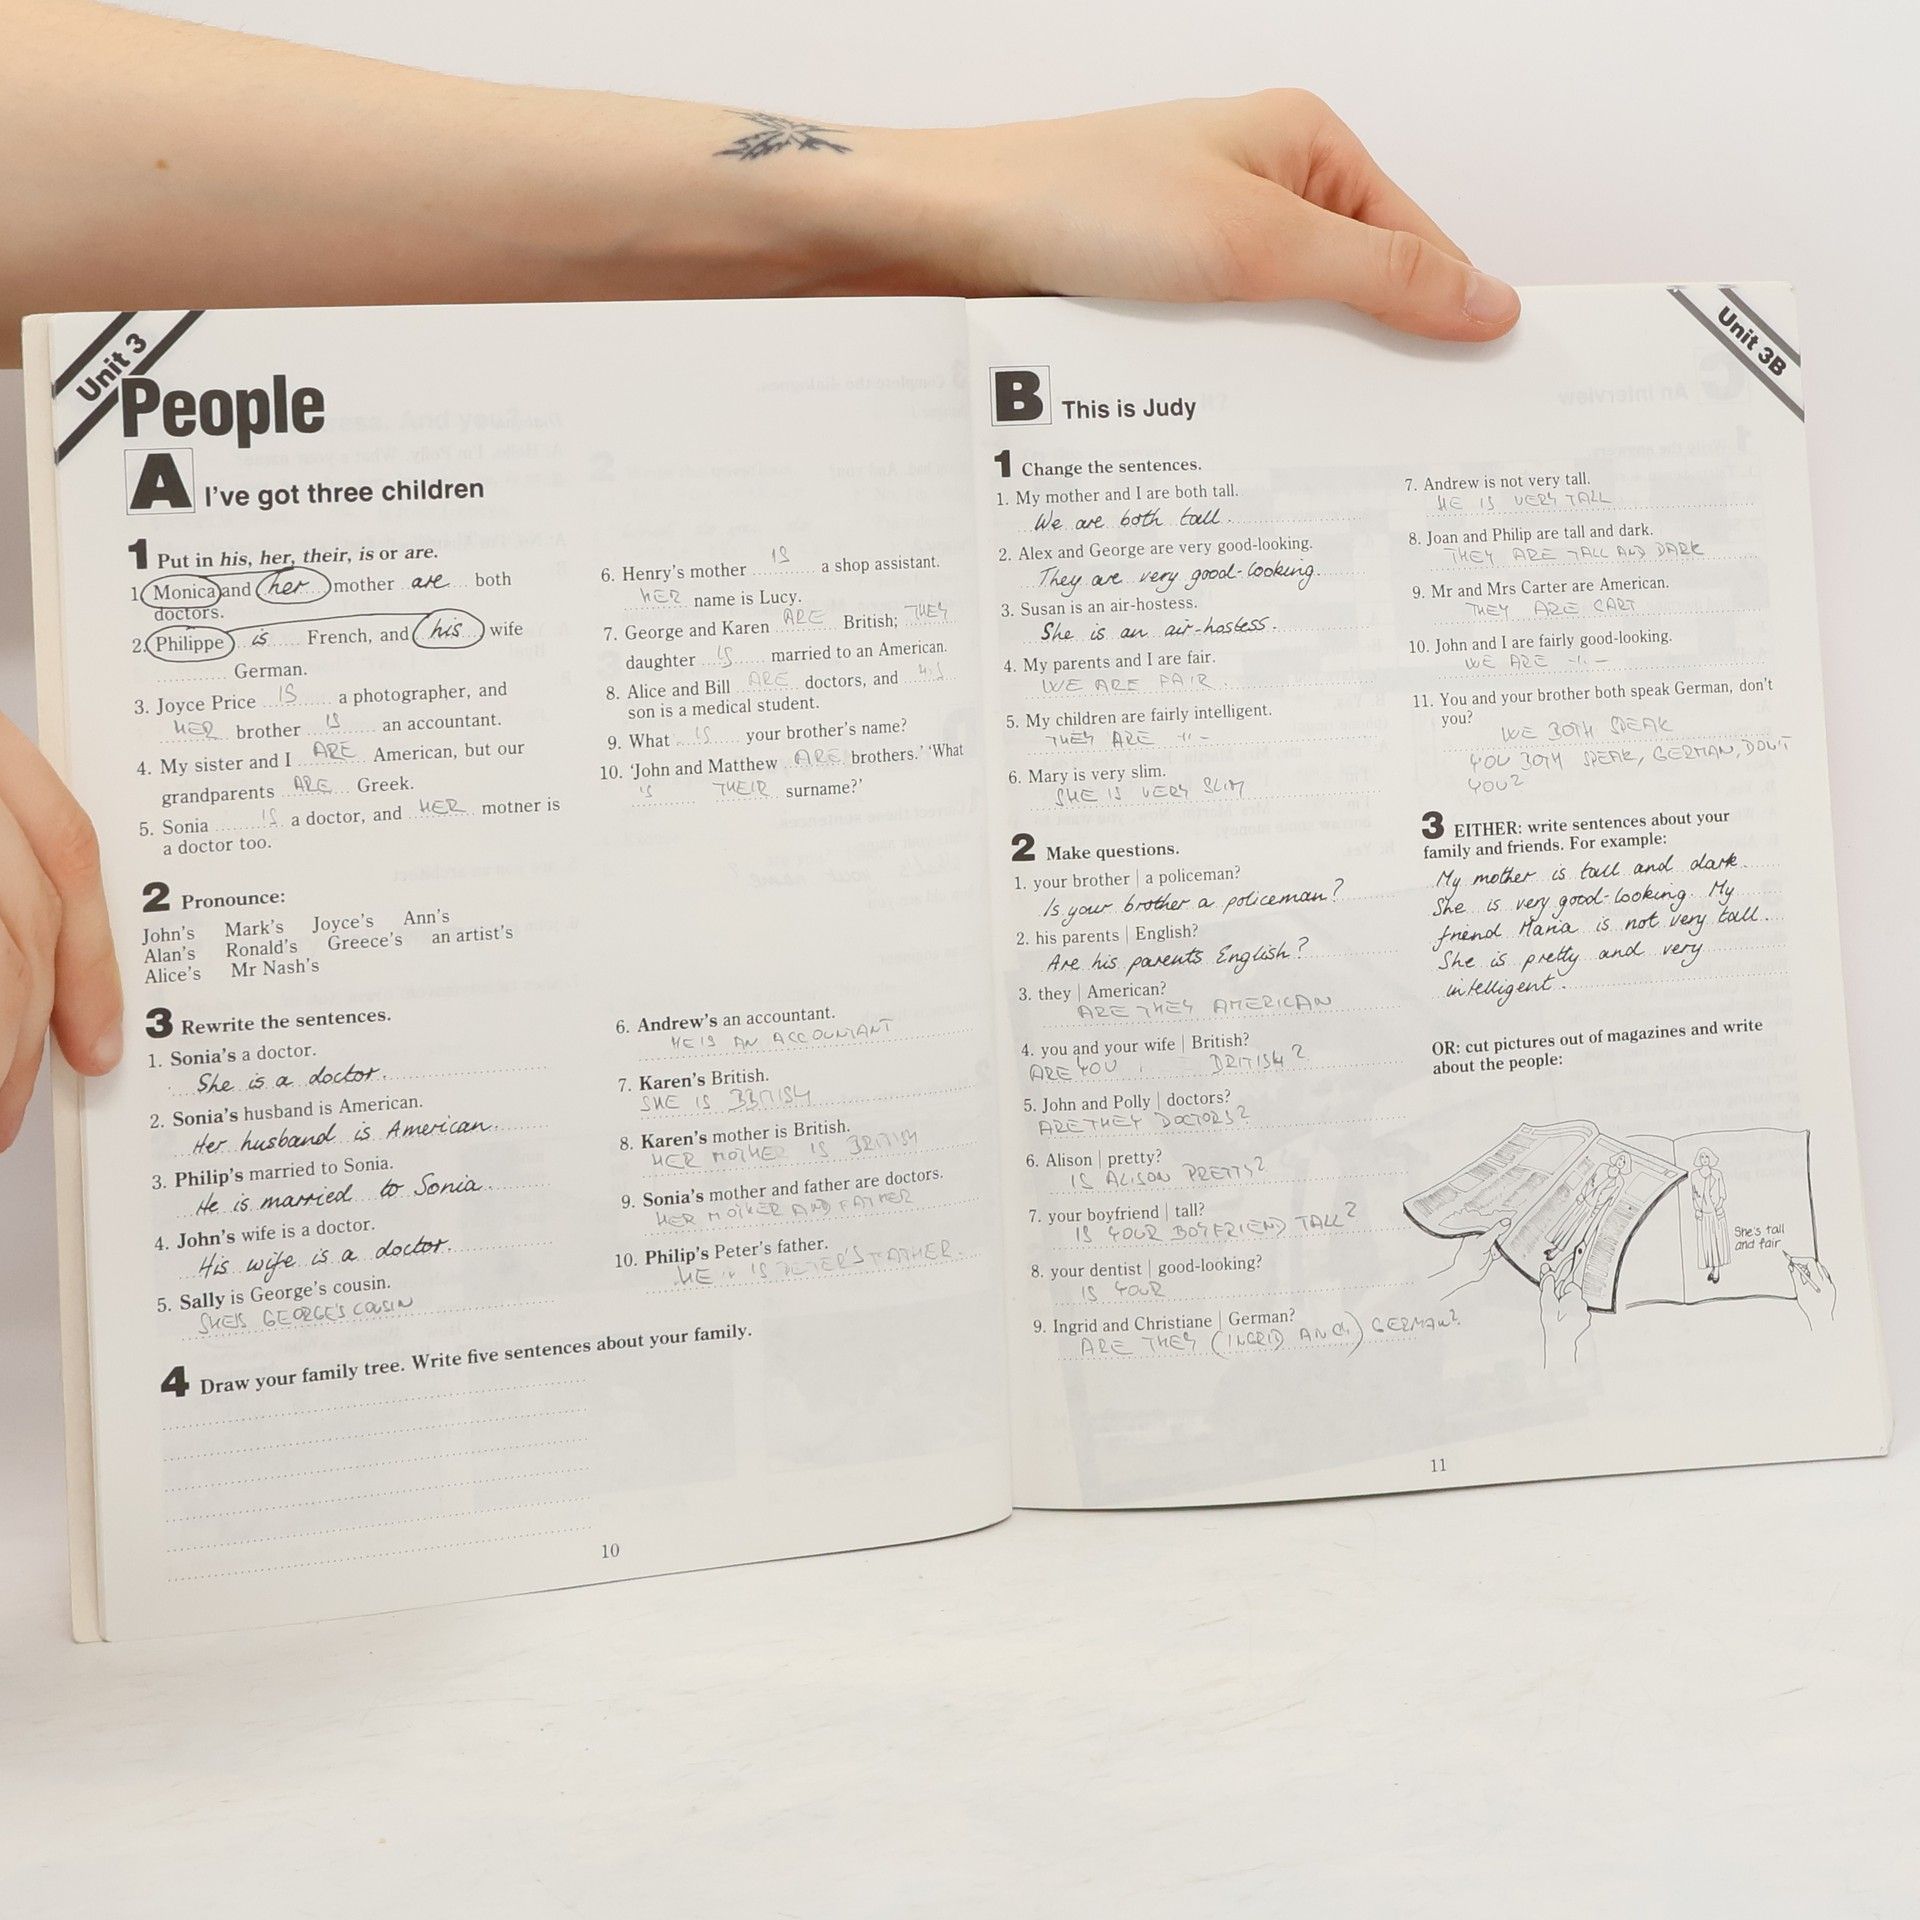 Unit 3
People
A I've got three children
1 Put in his, her, their, is or are.
1. Monica and her mother are both
doctors.
2. Philippe is French, and his wife
German.
3. Joyce Price IS a photographer, and
HER brother IS an accountant.
4. My sister and I ARE American, but our
grandparents ARE Greek.
5. Sonia IS a doctor, and HER mother is
a doctor too.
6. Henry's mother IS a shop assistant.
HER name is Lucy.
7. George and Karen ARE British; THEY
daughter IS married to an American.
8. Alice and Bill ARE doctors, and
son is a medical student.
9. What IS your brother's name?
10. 'John and Matthew ARE brothers.' 'What
IS THEIR surname?'
2 Pronounce:
John's Mark's Joyce's Ann's
Alan's Ronald's Greece's an artist's
Alice's Mr Nash's
3 Rewrite the sentences.
1. Sonia's a doctor.
She is a doctor.
2. Sonia's husband is American.
Her husband is American.
3. Philip's married to Sonia.
He is married to Sonia.
4. John's wife is a doctor.
His wife is a doctor.
5. Sally is George's cousin.
SHE'S GEORGE'S COUSIN
6. Andrew's an accountant.
HE IS AN ACCOUNTANT
7. Karen's British.
SHE IS BRITISH
8. Karen's mother is British.
HER MOTHER IS BRITISH
9. Sonia's mother and father are doctors.
HER MOTHER AND FATHER
10. Philip's Peter's father.
HE IS PETER'S FATHER.
4 Draw your family tree. Write five sentences about your family.
10
Unit 3B
B This is Judy
1 Change the sentences.
1. My mother and I are both tall.
We are both tall.
2. Alex and George are very good-looking.
They are very good-looking.
3. Susan is an air-hostess.
She is an air-hostess.
4. My parents and I are fair.
WE ARE FAIR.
5. My children are fairly intelligent.
THEY ARE -"-
6. Mary is very slim.
SHE IS VERY SLIM
7. Andrew is not very tall.
HE IS VERY TALL
8. Joan and Philip are tall and dark.
THEY ARE TALL AND DARK
9. Mr and Mrs Carter are American.
THEY ARE CART
10. John and I are fairly good-looking.
WE ARE -"-
11. You and your brother both speak German, don't
you?
WE BOTH SPEAK
YOU BOTH SPEAK, GERMAN, DON'T
YOU?
2 Make questions.
1. your brother | a policeman?
Is your brother a policeman?
2. his parents | English?
Are his parents English?
3. they | American?
ARE THEY AMERICAN
4. you and your wife | British?
ARE YOU BRITISH?
5. John and Polly | doctors?
ARE THEY DOCTORS?
6. Alison | pretty?
IS ALISON PRETTY?
7. your boyfriend | tall?
IS YOUR BOYFRIEND TALL?
8. your dentist | good-looking?
IS YOUR
9. Ingrid and Christiane | German?
ARE THEY (INGRID AN CH) GERMAN?
3 EITHER: write sentences about your
family and friends. For example:
My mother is tall and dark.
She is very good-looking. My
friend Maria is not very tall.
She is pretty and very
intelligent.
OR: cut pictures out of magazines and write
about the people:
She's tall
and fair
11